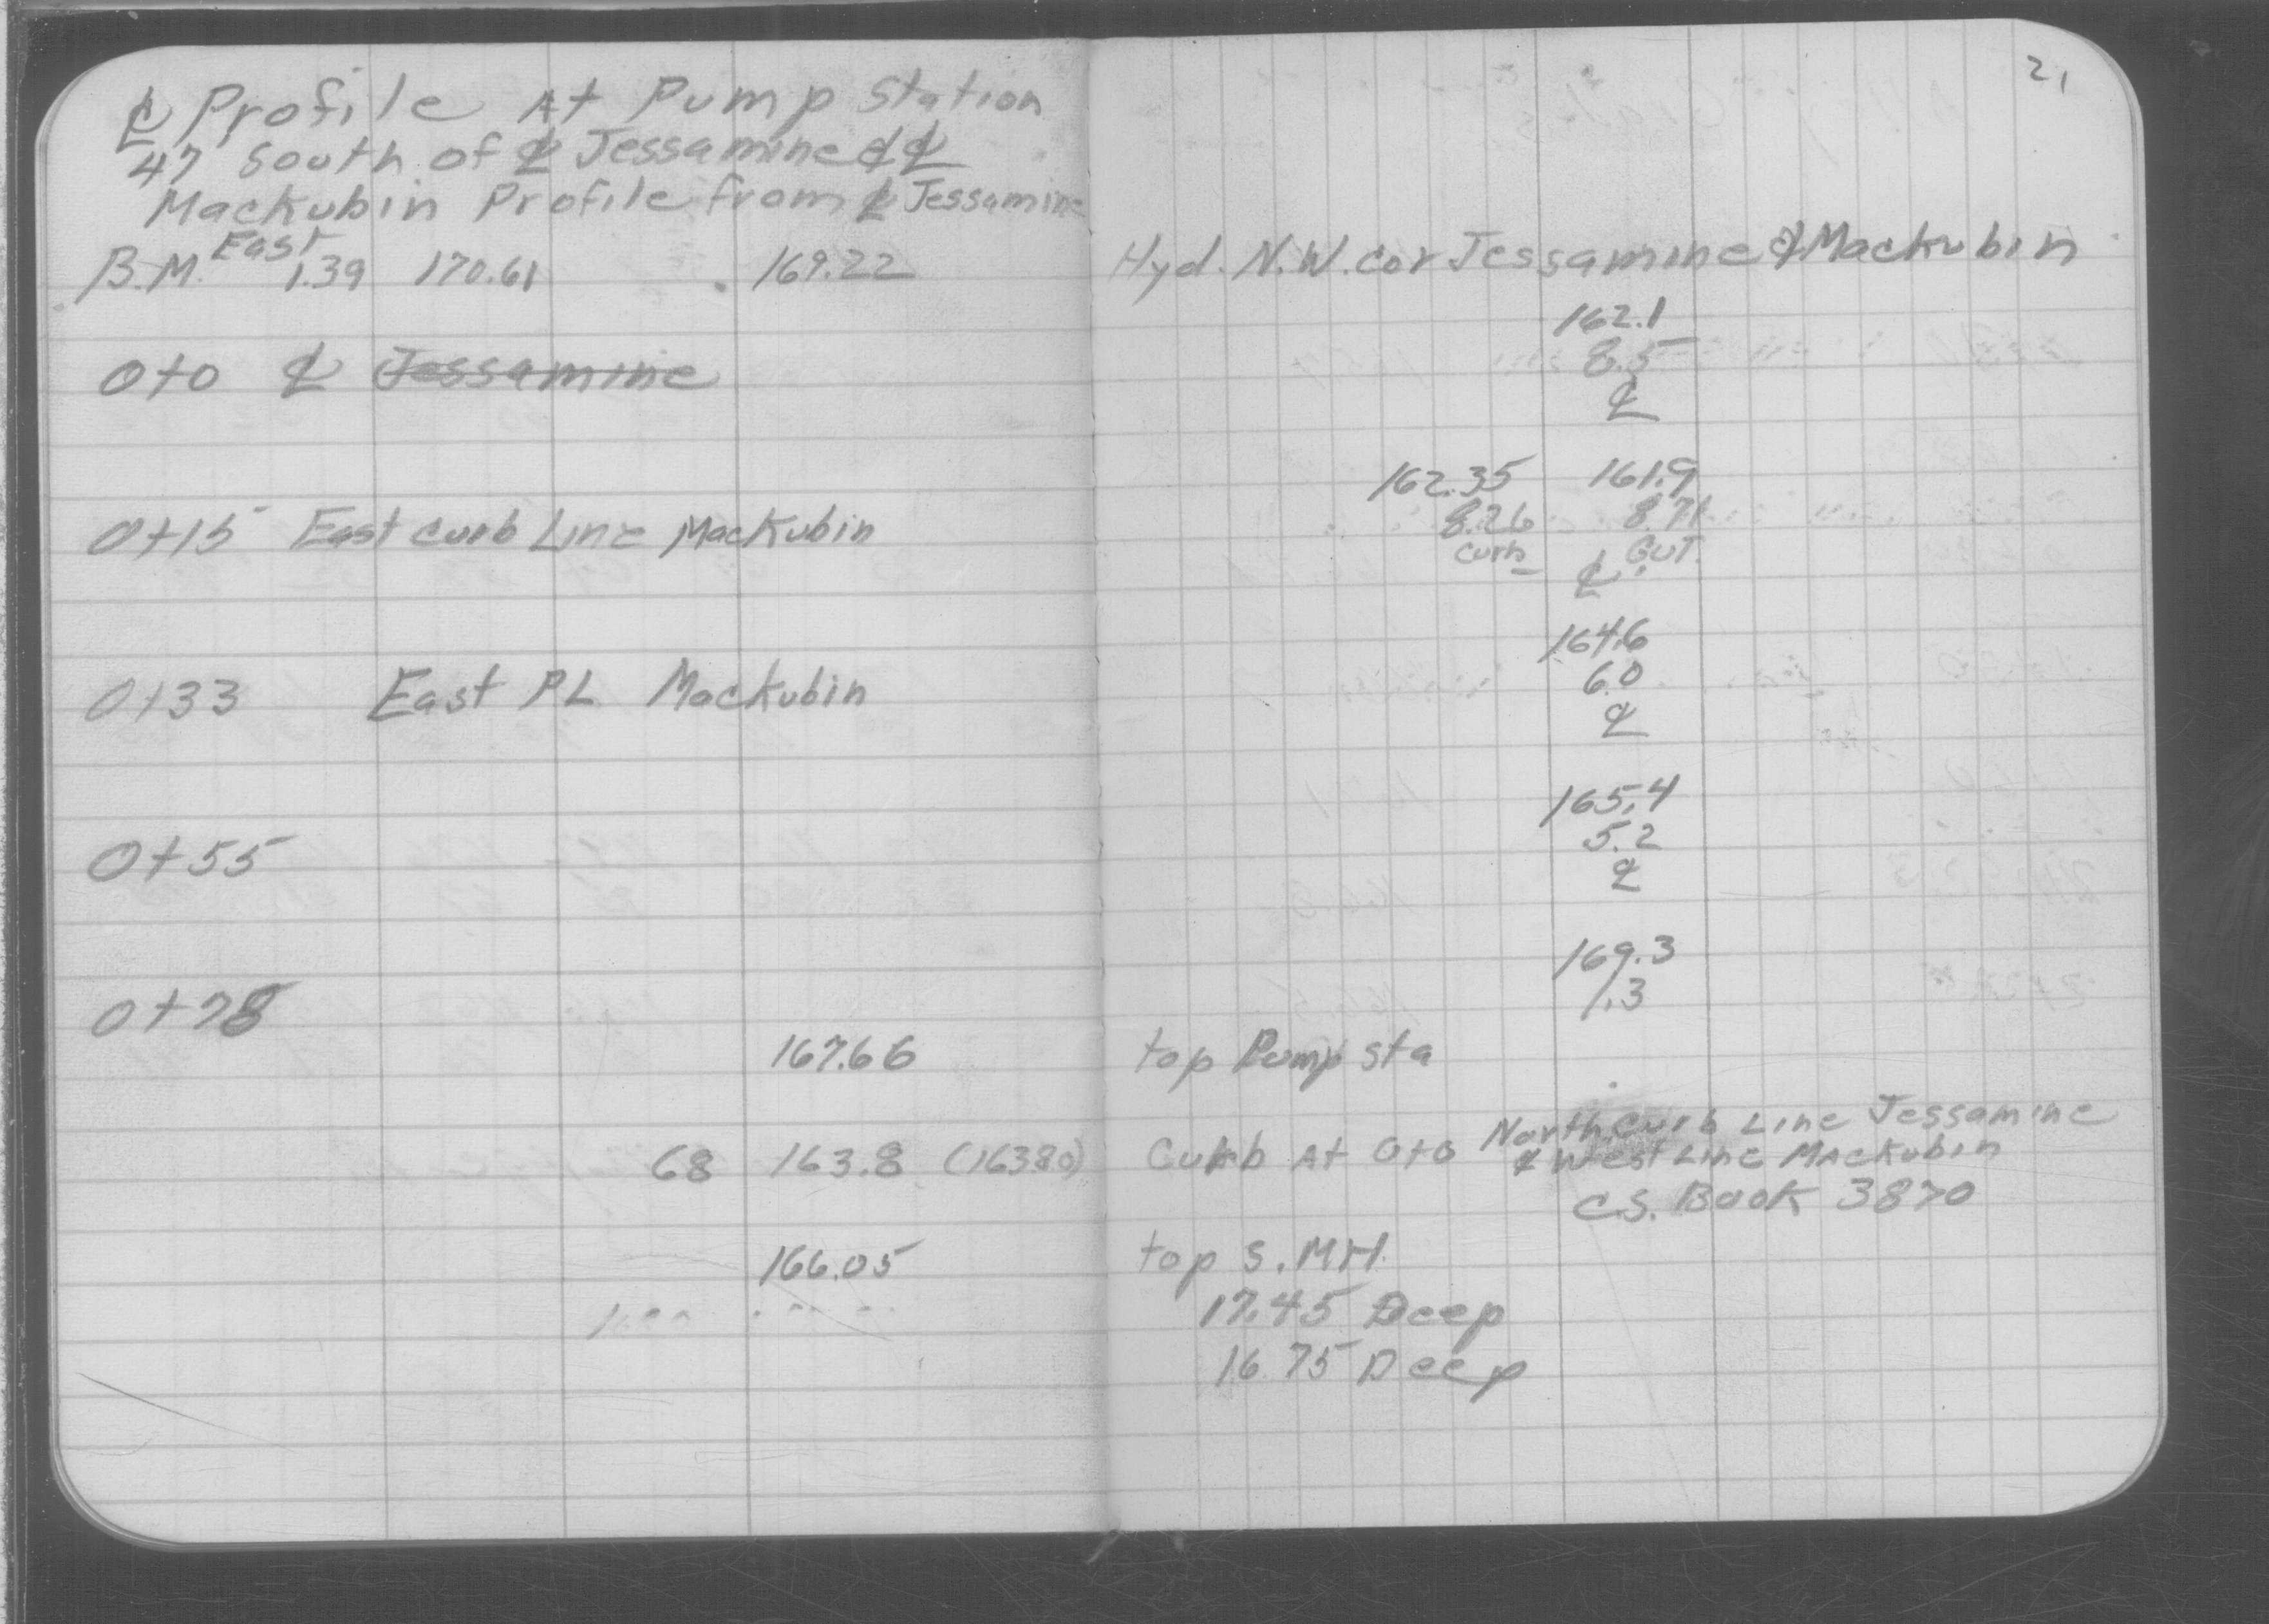 21
℄ Profile At Pump Station
47 South of ℄ Jessamine & ℄
Mackubin Profile from ℄ Jessamine
East
B.M. 1.39 170.61 169.22 Hyd. N.W. cor Jessamine & Mackubin
162.1
8.5
0+0 ℄ Jessamine
℄
162.35 161.9
8.26 8.71
0+15 East curb Line Mackubin
curb ℄ GUT.
164.6
6.0
0+33 East PL Mackubin
℄
165.4
5.2
0+55
℄
169.3
1.3
0+78
167.66 top Pump sta
68 163.8 (163.80) Curb At 0+0 North curb Line Jessamine
& West Line Mackubin
C.S. Book 3870
166.05 top S. MH.
17.45 Deep
16.75 Deep